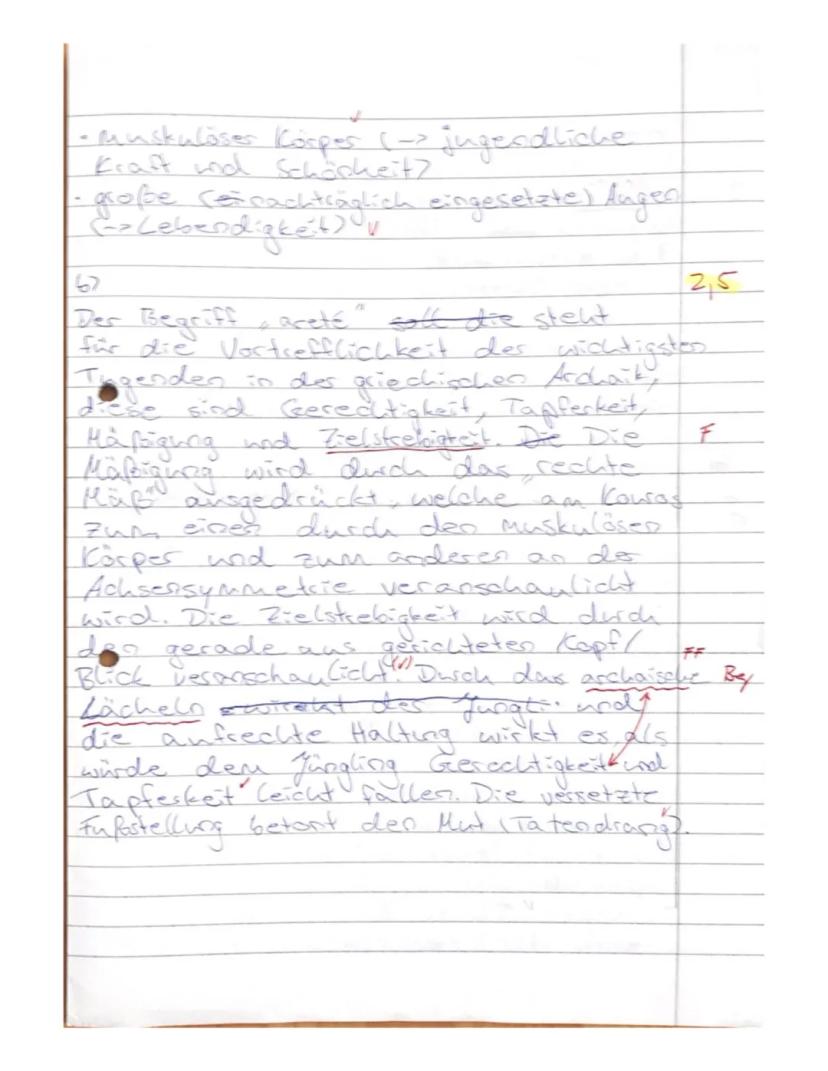 - muskulöser Körper (-> jugendliche
Kraft und Schönheit)
- große (nachträglich eingesetzte) Augen
(-> Lebendigkeit)
b)
2,5
Der Begriff „areté" soll die steht
für die Vortrefflichkeit der wichtigsten
Tugenden in der griechischen Archaik,
diese sind Gerechtigkeit, Tapferkeit,
Mäßigung und Zielstrebigkeit. Die Die
F
Mäßigung wird durch das „rechte
Maß" ausgedrückt, welche am Kouros
zum einen durch den muskulösen
Körper und zum anderen an der
Achsensymmetrie veranschaulicht
wird. Die Zielstrebigkeit wird durch
den gerade aus gerichteten Kopf/
FF
Blick veranschaulicht. (√) Durch das archaische
Bez
Lächeln wirkt der Jüngl. und
die aufrechte Haltung wirkt es als
würde dem Jüngling Gerechtigkeit und
Tapferkeit leicht fallen. Die versetzte
Fußstellung betont den Mut (Tatendrang).